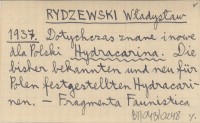 RYDZEWSKI Władysław
1937. Dotychczas znane i nowe
dla Polski Hydracarina. Die
bisher bekannten und neu für
Polen festgestellten Hydracari-
nen. — Fragmenta Faunistica